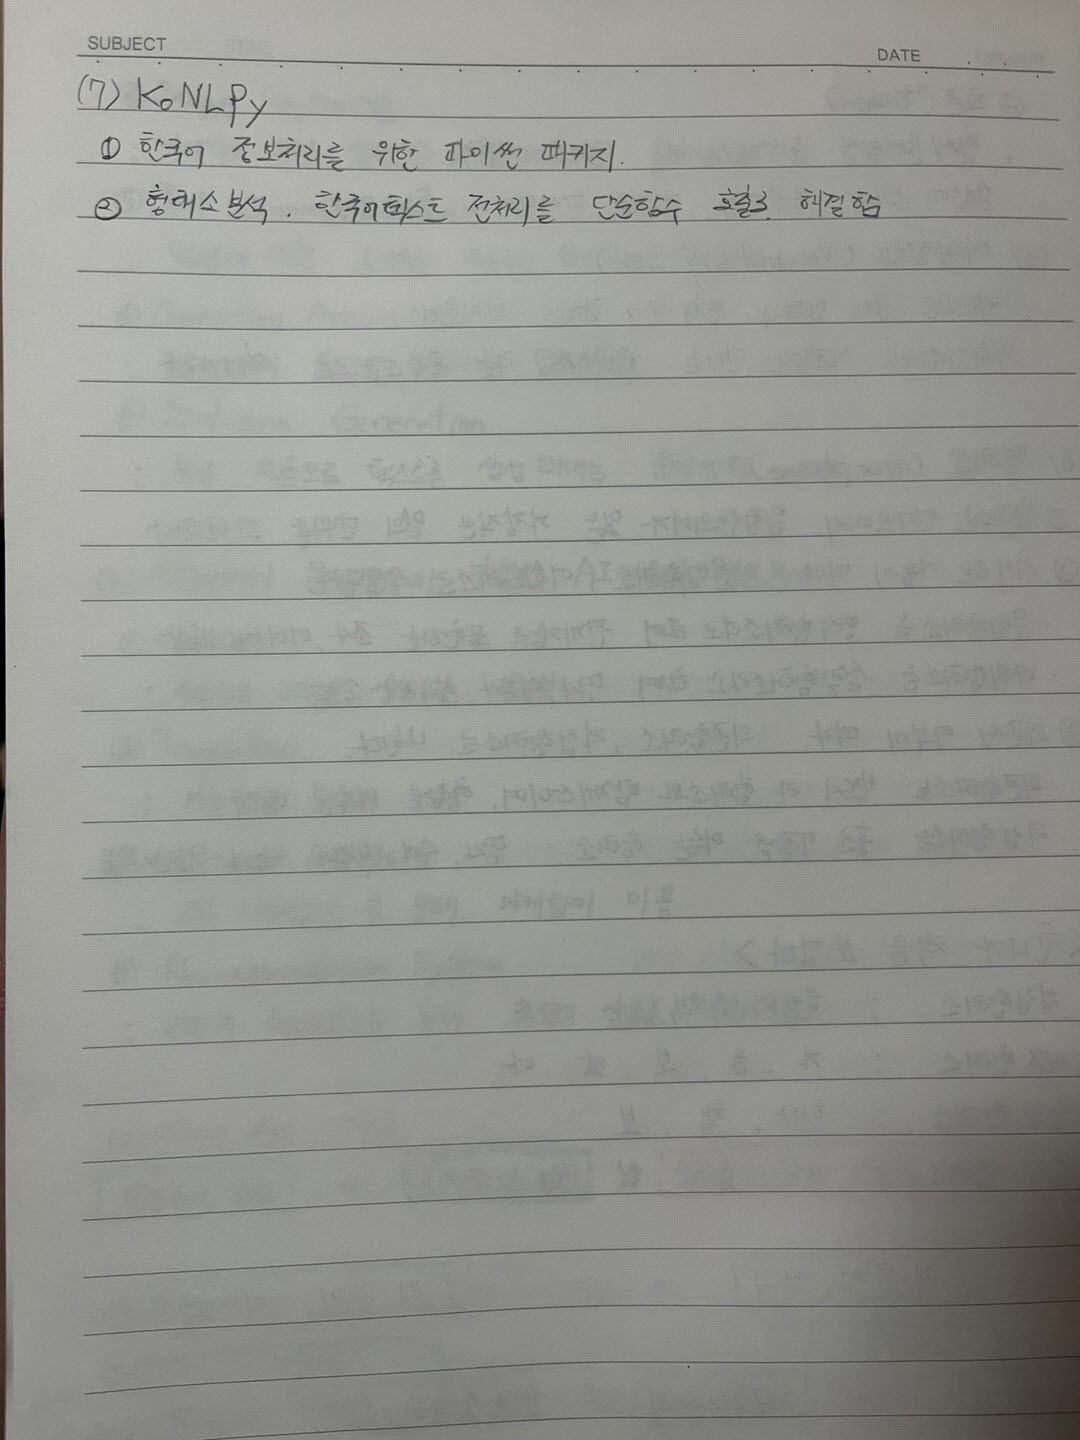 SUBJECT
DATE
(7) KoNLPy
① 한국어 정보처리를 위한 파이썬 패키지.
② 형태소분석. 한국어텍스트 전처리를 단순함수 호출로 해결함